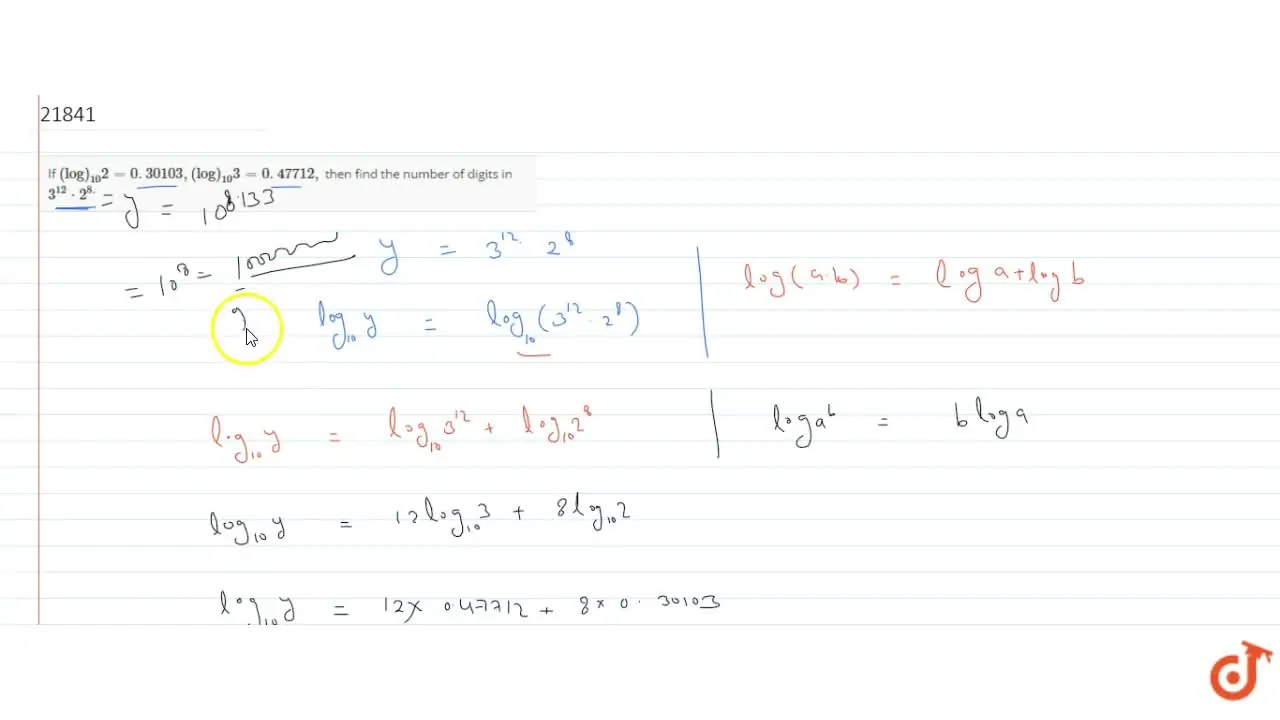 21841
If (log)₁₀2 = 0.30103, (log)₁₀3 = 0.47712, then find the number of digits in
3¹² · 2⁸. = y = 10⁸·¹³³
= 10⁸ = 100000000
y = 3¹² · 2⁸
log(a·b) = log a + log b
9
log₁₀ y = log₁₀ (3¹² · 2⁸)
log₁₀ y = log₁₀ 3¹² + log₁₀ 2⁸
log aᵇ = b log a
log₁₀ y = 12 log₁₀ 3 + 8 log₁₀ 2
log₁₀ y = 12 × 0.47712 + 8 × 0.30103